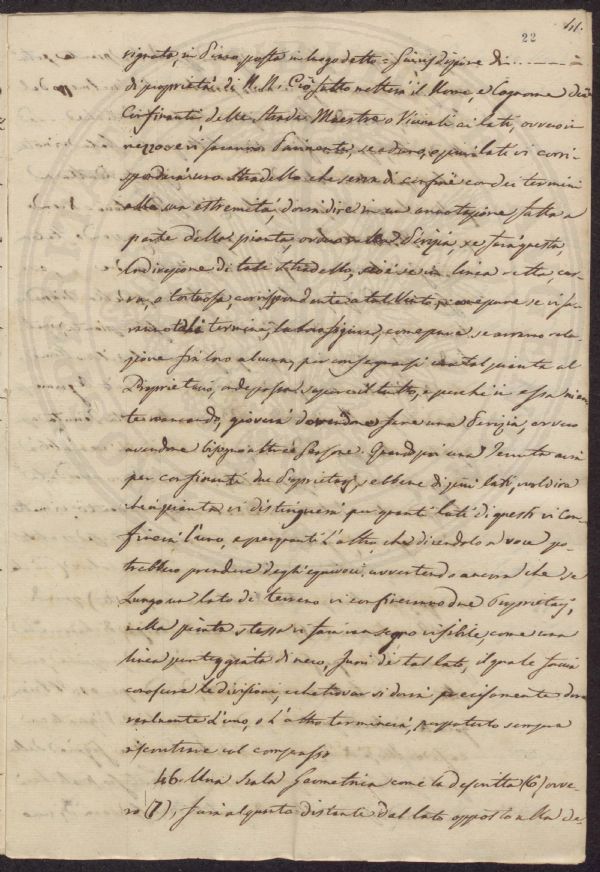 41.
22
vignata, in Pisso posta in luogo detto = Giurisdizione di
di proprietà di N. N. Ciò fatto metterà il Nome, e Cognome dei
Confinanti, delle strade Maestre o Vicinali ai lati, ovvero in
mezzo se vi saranno Parimente, se ad uno, o più lati vi corri-
sponderà uno stradello che serva di confine con dei termini
alla sua estremità, dovrà dire in un annotazione fatta a
parte della pianta, ovvero Perizia, se sarà questa,
la direzione di tale stradello, cioè se in linea retta, cur-
va, o tortuosa, corrispondente a tal Vento, come pure se vi sa-
ranno termini, la loro figura, come pure se avranno rela-
zione fra loro alcuna, per consegnarsi una tal pianta al
Proprietario, onde possa sapere il tutto, e perchè in essa nien-
te mancando, gioverà dovendo fare una Perizia, ovvero
avendone bisogno altre Persone. Quando poi una Tenuta avrà
per confinanti due Proprietarj, sebbene di più lati, vuol dire
che in pianta vi distinguerà per quanti lati di questi vi con-
finerà l'uno, e per quanti l'altro, che dicendolo a voce po-
trebbero prendere degli equivoci, avvertendo ancora che se
Lungo un lato di terreno vi confineranno due Proprietarj,
nella pianta stessa vi farà un segno visibile, come una
linea punteggiata di nero, fuori di tal lato, il quale faccia
conoscere la divisione, e che trovar si dovrà precisamente dove
realmente l'uno, o l'altro terminerà, per poterlo sempre
riscontrare col compasso
46. Una Scala Geometrica come la descritta (6) ovve-
ro (7), sarà alquanto distante dal lato opposto alla de-